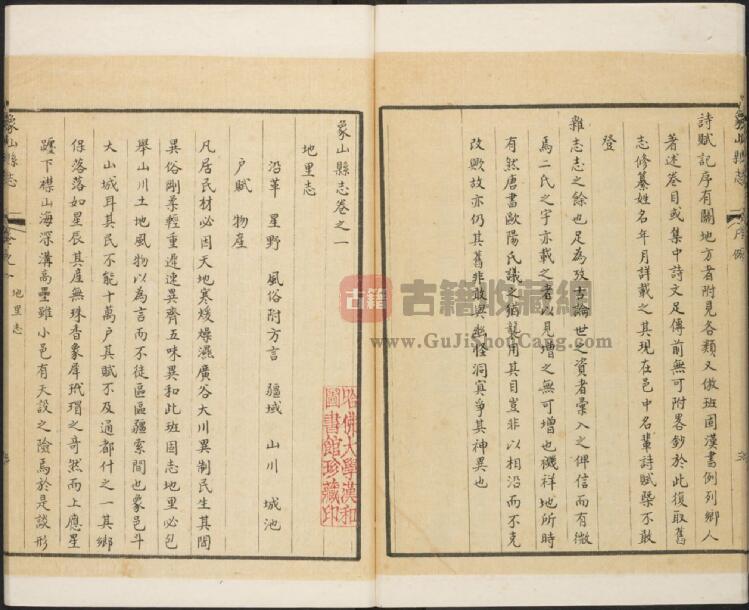 詩賦記序有關地方者附見各類又倣班固漢書例列鄉人
著述卷目或集中詩文足傳前無可附畧鈔於此復取舊
志修纂姓名年月詳載之其現在邑中名輩詩賦槩不敢
登
雜志志之餘也足為攷古論世之資者彙入之俾信而有徵
焉二氏之宇亦載之者以見增之無可增也禨祥地所時
有然唐書歐陽氏議之猶襲用其目豈非以相沿而不克
改歟故亦仍其舊非敢與幽怪洞冥爭其神異也
象山縣志卷之一
地里志
沿革 星野 風俗附方言 疆域 山川 城池
户賦 物産
凡居民材必因天地寒煖燥濕廣谷大川異制民生其間
異俗剛柔輕重遲速異齊五味異和此班固志地里必包
舉山川土地風物以為言而不徒區區疆索間也象邑斗
大山城耳其民不能十萬户其賦不及通都什之一其鄉
保落落如星辰其産無珠香象犀玳瑁之奇然而上應星
躔下襟山海深溝高壘雖小邑有天設之險焉於是談形
象山縣志
地里志
哈佛大學漢和
圖書館珍藏印
古籍
古籍收藏網
www.GuJiShouCang.com